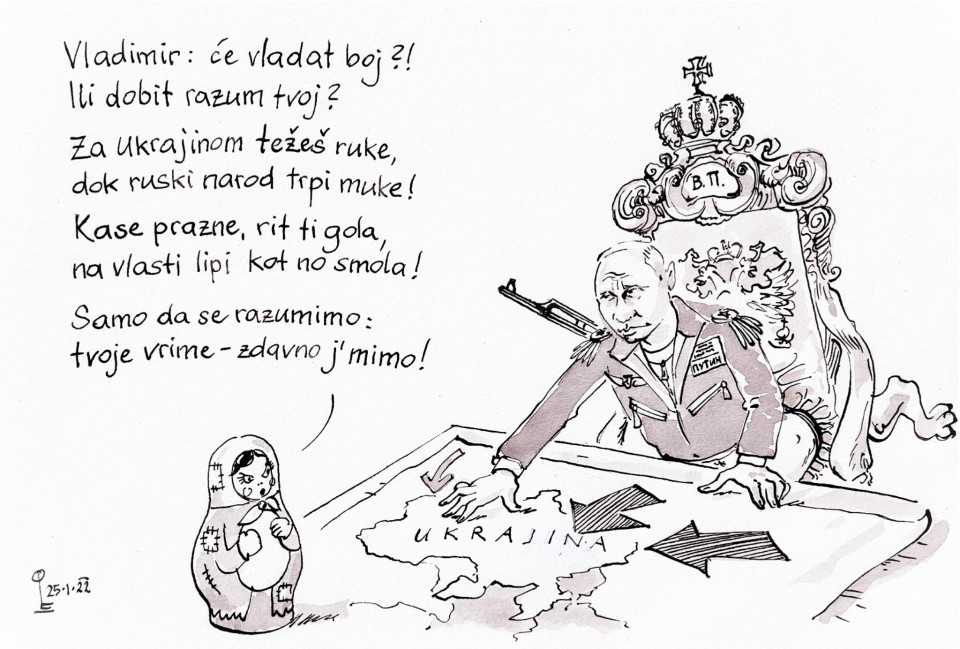 Vladimir: će vladat boj?!
Ili dobit razum tvoj?
Za Ukrajinom težeš ruke,
dok ruski narod trpi muke!
Kase prazne, rit ti gola,
na vlasti lipi kot no smola!
Samo da se razumimo:
tvoje vrime - zdavno j' mimo!
В.П.
ПУТИН
UKRAJINA
25.1.22